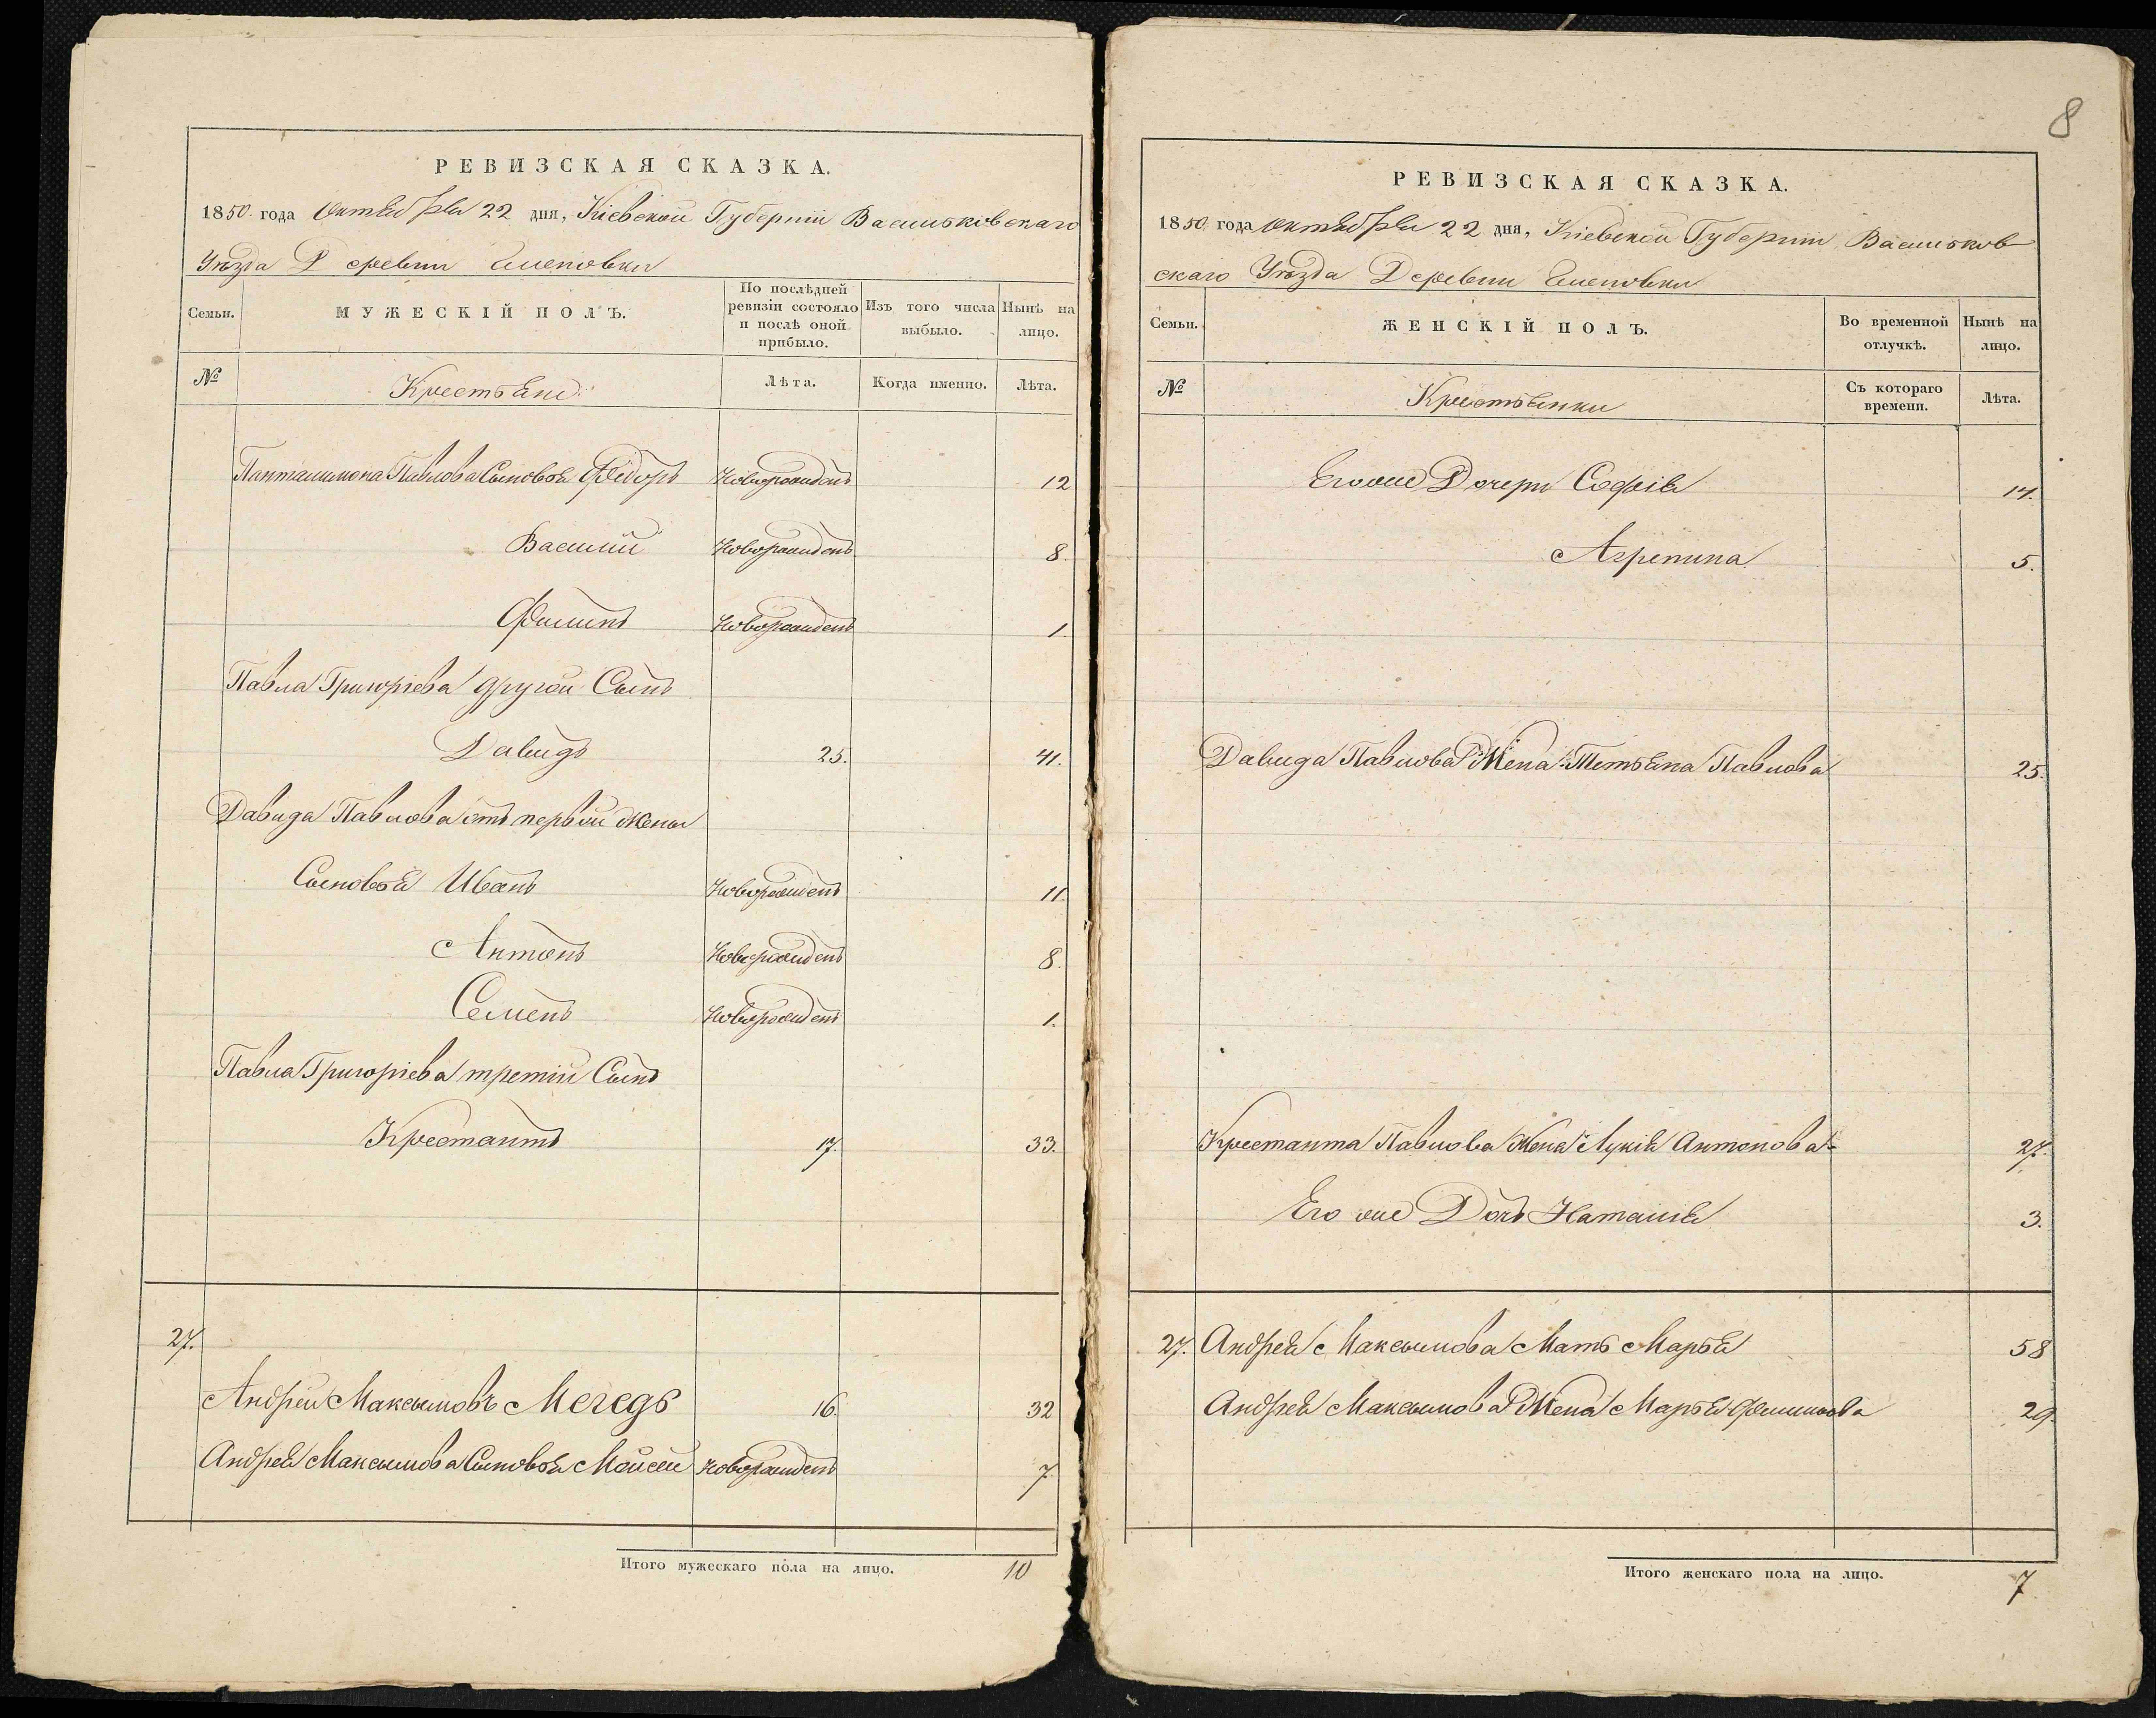 8
РЕВИЗСКАЯ СКАЗКА.
1850 года Октября 22 дня, Кіевской Губерніи Васильковскаго
Уѣзда Деревни
Семьи.
МУЖЕСКІЙ ПОЛЪ.
По послѣдней ревизіи состояло и послѣ оной прибыло.
Изъ того числа выбыло.
Нынѣ на лицо.
№
Крестьяне
Лѣта.
Когда именно.
Лѣта.
Панталимона Павлова Сыновья Федоръ Новорожденъ 12
Василій Новорожденъ 8.
Филипъ Новорожденъ 1.
Павла Григоріева другой Сынъ
Давидъ 25. 41.
Давида Павлова отъ первой Жены
Сыновья Иванъ Новорожденъ 11.
Антонъ Новорожденъ 8.
Семенъ Новорожденъ 1.
Павла Григоріева третій Сынъ
Крестантъ 17. 33.
27.
Андрей Максимовъ Мегедь 16. 32
Андрея Максимова Сыновья Мойсей Новорожденъ 7.
Итого мужескаго пола на лицо. 10
РЕВИЗСКАЯ СКАЗКА.
1850 года Октября 22 дня, Кіевской Губерніи Васильков
скаго Уѣзда Деревни
Семьи.
ЖЕНСКІЙ ПОЛЪ.
Во временной отлучкѣ.
Нынѣ на лицо.
№
Крестьянки
Съ котораго времени.
Лѣта.
Его же Дочери Софія 14.
Агрепина 5.
Давида Павлова Жена Тетьяна Павлова 25.
Крестанта Павлова Жена Лукія Антонова 27.
Его же Дочь Наталія 3.
27. Андрея Максимова Мать Марья 58
Андрея Максимова Жена Марья Филипова 29
Итого женскаго пола на лицо. 7